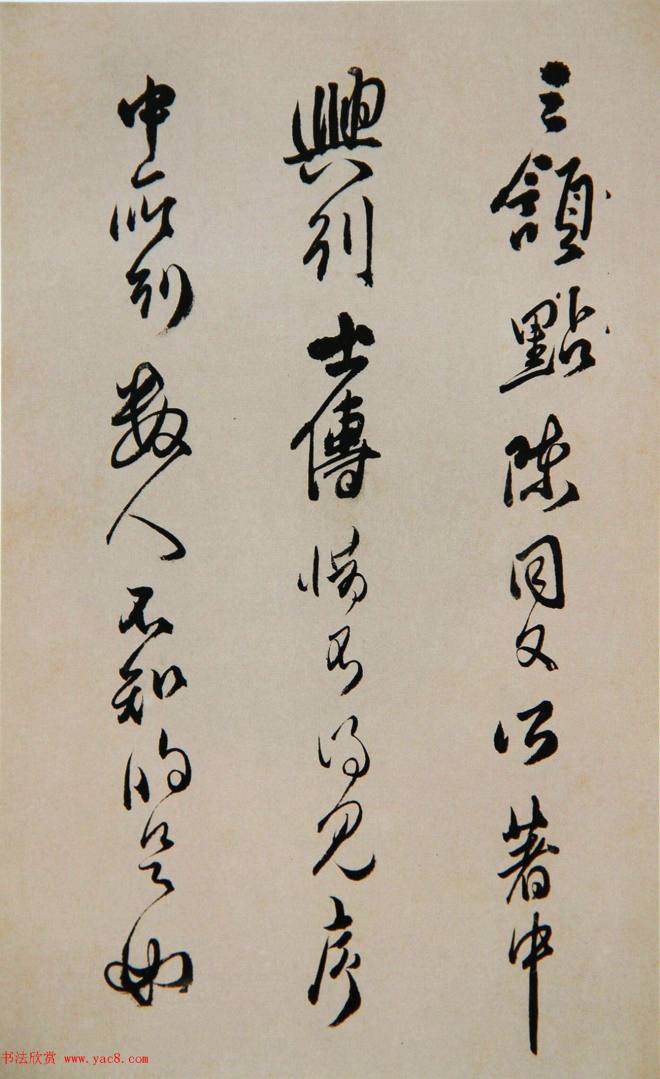 三頷點陳同父所著中
興列士傳惜得見序
中所列數人不知的是如
书法欣赏 www.yac8.com